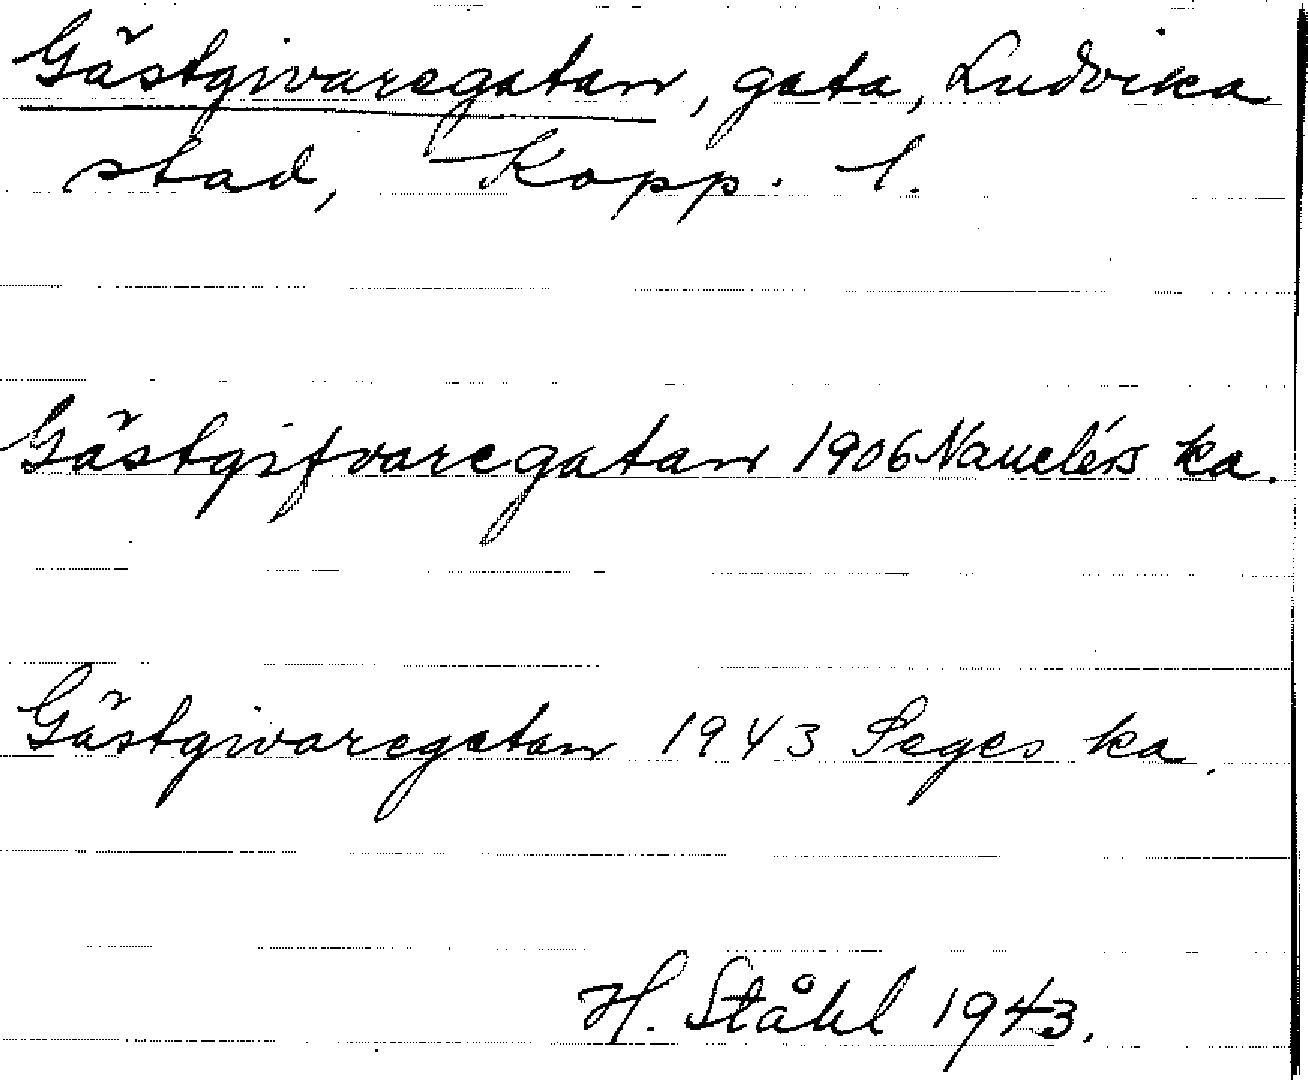 Gästgivaregatan, gata, Ludvika
stad, Kopp. l.
Gästgifvaregatan 1906 Nauclérs ka.
Gästgivaregatan 1943 Seges ka.
H. Ståhl 1943.